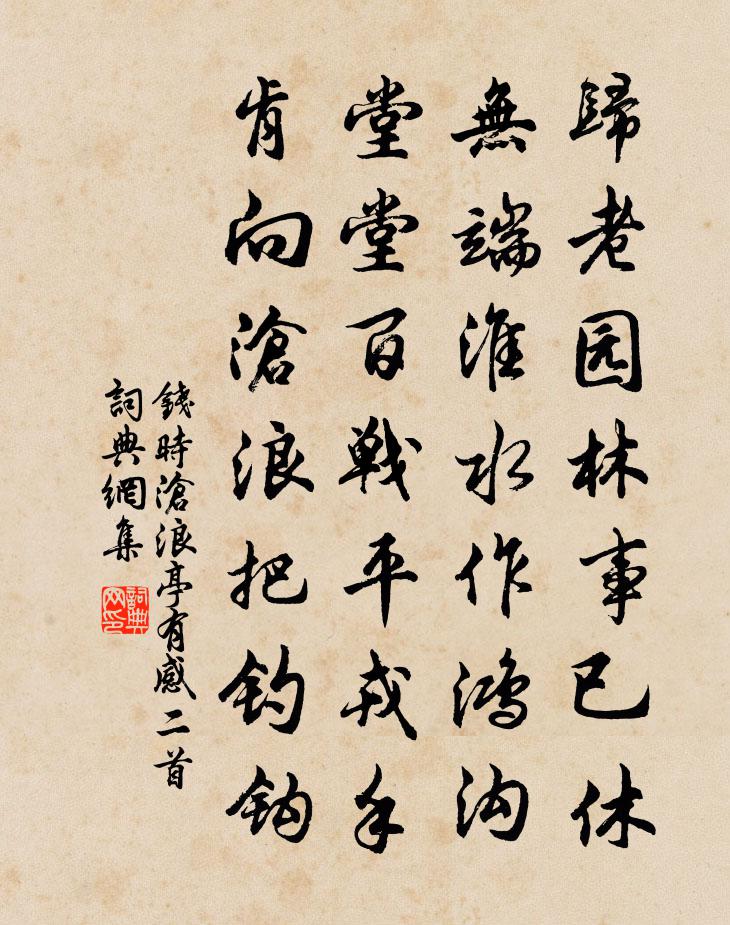 歸老园林事已休
無端淮水作鴻沟
堂堂百戰平戎手
肯向滄浪把釣鈎
錢時滄浪亭有感二首
詞典網集
詞典网印